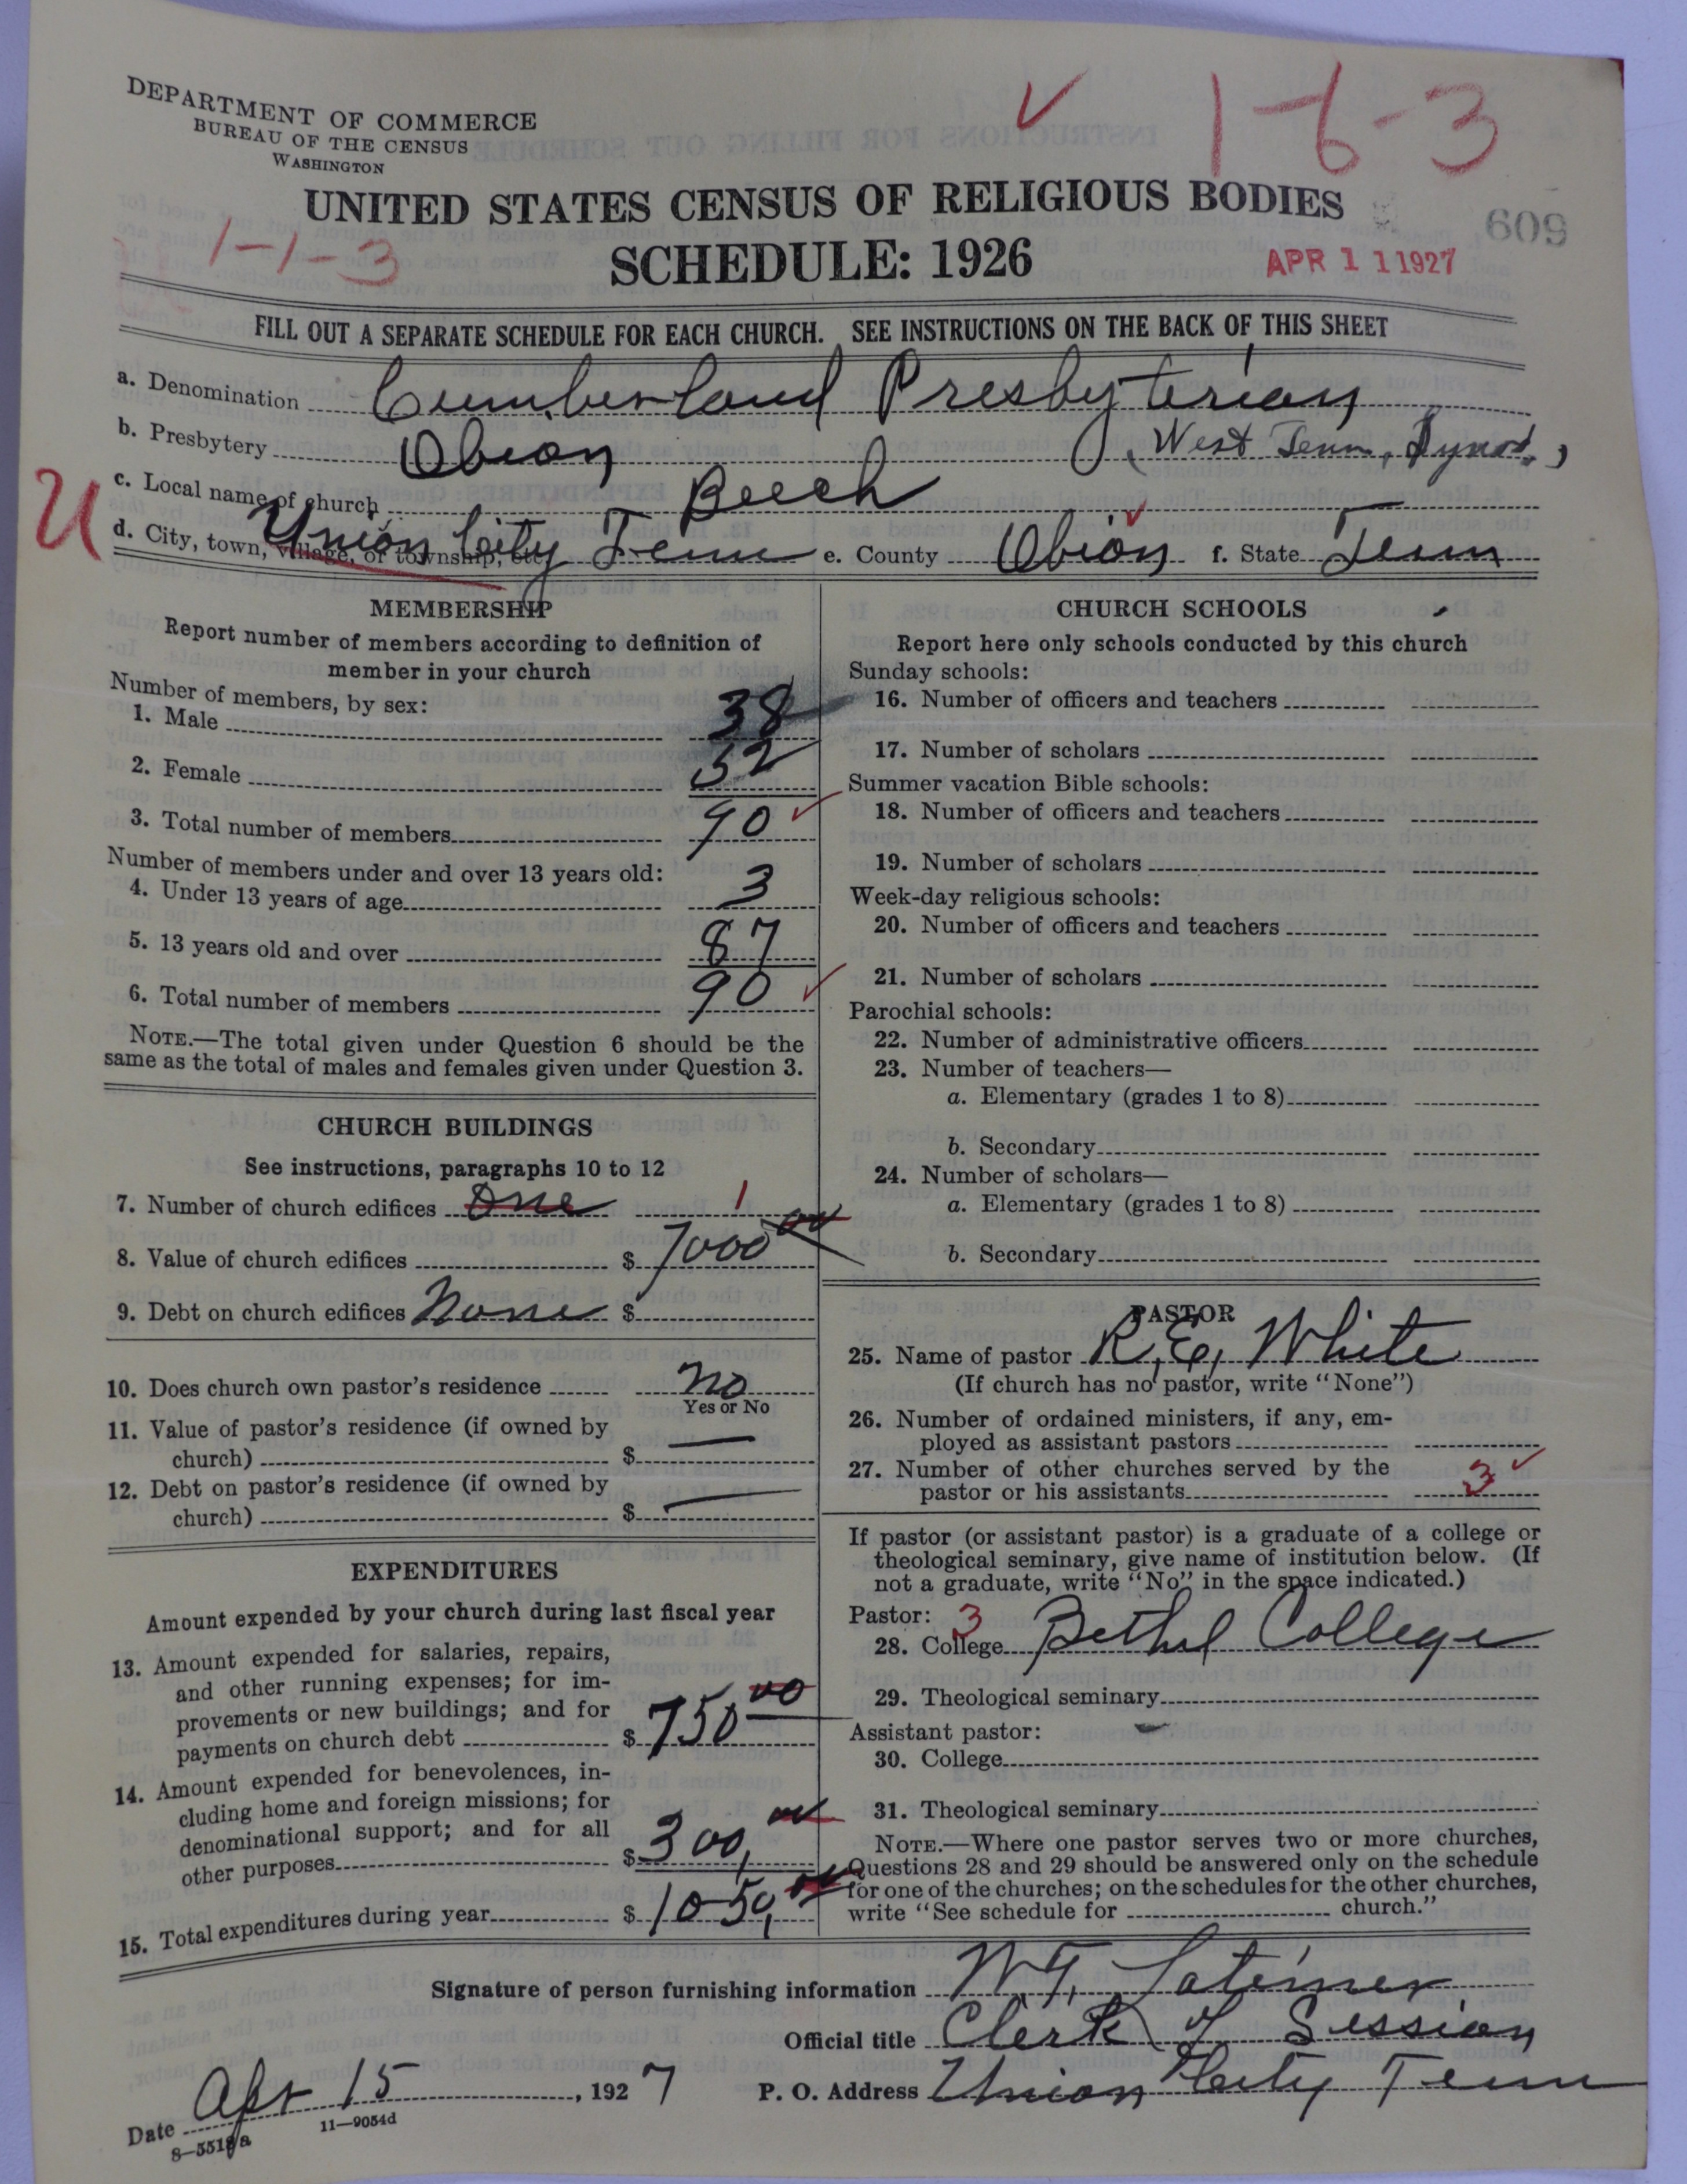 DEPARTMENT OF COMMERCE
BUREAU OF THE CENSUS
WASHINGTON
1-6-3
UNITED STATES CENSUS OF RELIGIOUS BODIES
SCHEDULE: 1926
1-1-3
609
APR 11 1927
FILL OUT A SEPARATE SCHEDULE FOR EACH CHURCH. SEE INSTRUCTIONS ON THE BACK OF THIS SHEET
a. Denomination Cumberland Presbyterian
b. Presbytery Obion (West Tenn, Synod.)
c. Local name of church Beech
U
d. City, town, village, or township, etc. Union City Tenn e. County Obion f. State Tenn
MEMBERSHIP
Report number of members according to definition of
member in your church
Number of members, by sex:
1. Male 38
2. Female 52
3. Total number of members 90
Number of members under and over 13 years old:
4. Under 13 years of age 3
5. 13 years old and over 87
6. Total number of members 90
NOTE.—The total given under Question 6 should be the
same as the total of males and females given under Question 3.
CHURCH BUILDINGS
See instructions, paragraphs 10 to 12
7. Number of church edifices One 1
8. Value of church edifices $ 7000 00
9. Debt on church edifices None $
10. Does church own pastor's residence no
Yes or No
11. Value of pastor's residence (if owned by
church) $ —
12. Debt on pastor's residence (if owned by
church) $ —
EXPENDITURES
Amount expended by your church during last fiscal year
13. Amount expended for salaries, repairs,
and other running expenses; for im-
provements or new buildings; and for
payments on church debt $ 750 00
14. Amount expended for benevolences, in-
cluding home and foreign missions; for
denominational support; and for all
other purposes $ 300, 00
15. Total expenditures during year $ 1050, 00
CHURCH SCHOOLS
Report here only schools conducted by this church
Sunday schools:
16. Number of officers and teachers
17. Number of scholars
Summer vacation Bible schools:
18. Number of officers and teachers
19. Number of scholars
Week-day religious schools:
20. Number of officers and teachers
21. Number of scholars
Parochial schools:
22. Number of administrative officers
23. Number of teachers—
a. Elementary (grades 1 to 8)
b. Secondary
24. Number of scholars—
a. Elementary (grades 1 to 8)
b. Secondary
PASTOR
25. Name of pastor R. E. White
(If church has no pastor, write "None")
26. Number of ordained ministers, if any, em-
ployed as assistant pastors
27. Number of other churches served by the
pastor or his assistants 3
If pastor (or assistant pastor) is a graduate of a college or
theological seminary, give name of institution below. (If
not a graduate, write "No" in the space indicated.)
Pastor: 3
28. College Bethel College
29. Theological seminary
Assistant pastor:
30. College
31. Theological seminary
NOTE.—Where one pastor serves two or more churches,
Questions 28 and 29 should be answered only on the schedule
for one of the churches; on the schedules for the other churches,
write "See schedule for church."
Signature of person furnishing information W. T. Latimer
Official title Clerk of Session
Date Apr 15, 1927 P. O. Address Union City Tenn
11—9054d
8—5518a